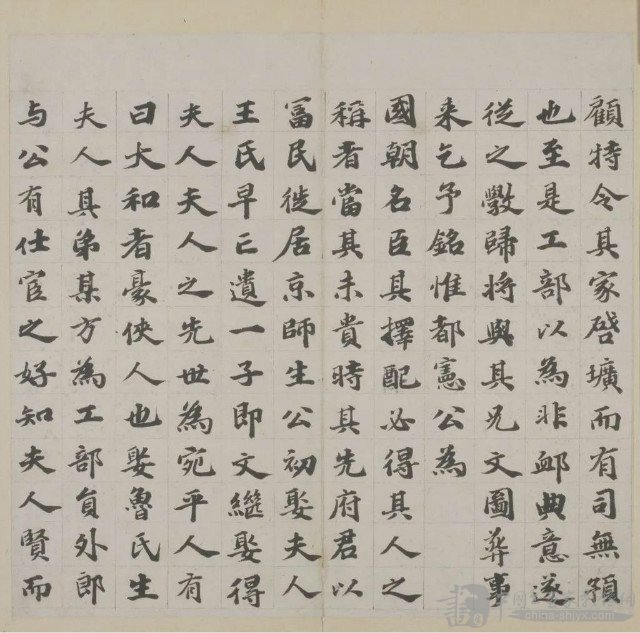 顧特令其家啓壙而有司無預
也至是工部以為非卹典意遂
從之斆歸將與其兄文圖葬事
来乞予銘惟都憲公為
國朝名臣其擇配必得其人之
稱者當其未貴時其先府君以
富民徙居京師生公初娶夫人
王氏早亡遺一子即文繼娶得
夫人夫人之先世為宛平人有
曰大和者豪俠人也娶魯氏生
夫人其弟某方為工部員外郎
与公有仕宦之好知夫人賢而